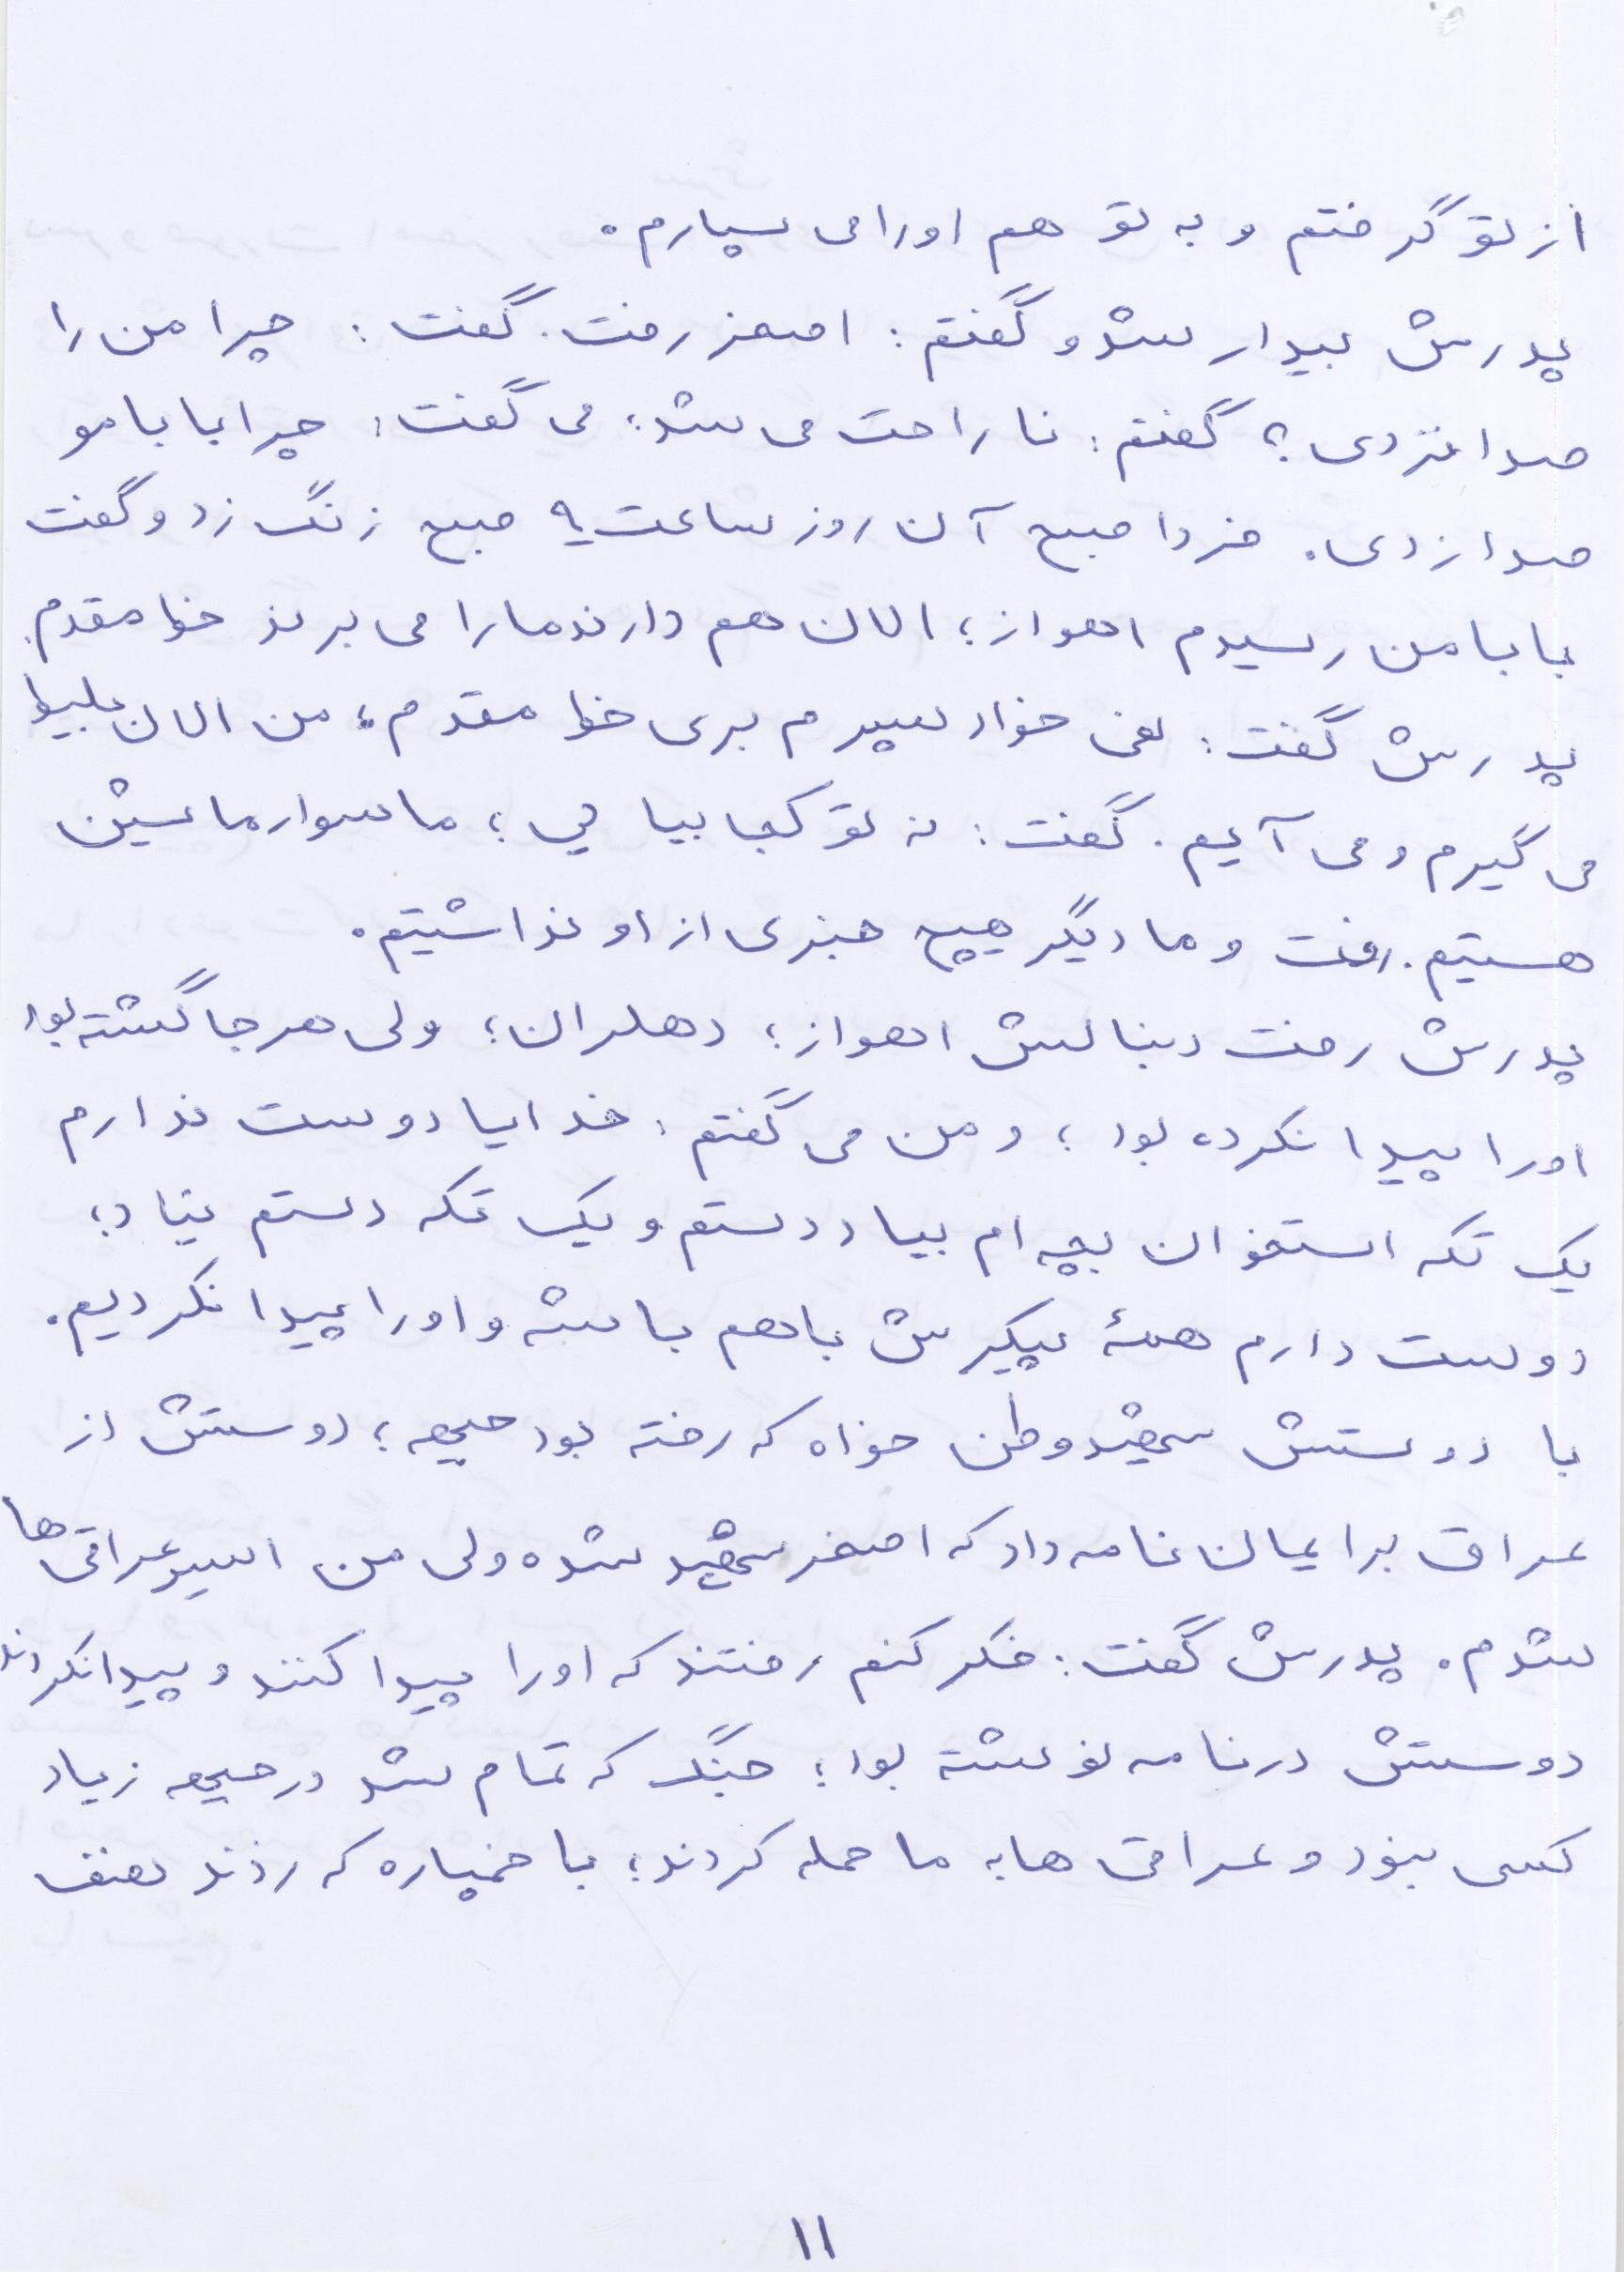 از تو گرفتم و به تو هم او را می سپارم.
پدرش بیدار شد و گفتم: اصغر رفت. گفت: چرا من را
صدا نزدی؟ گفتم: ناراحت می شد؛ می گفت: چرا بابامو
صدا زدی. فردا صبح آن روز ساعت ۹ صبح زنگ زد و گفت
بابا من رسیدم اهواز؛ الان هم دارند ما را می برند خط مقدم.
پدرش گفت: نمی خواد پسرم بری خط مقدم؛ من الان بلیط
می گیرم و می آیم. گفت: نه تو کجا بیایی؛ ما سوار ماشین
هستیم. رفت و ما دیگر هیچ خبری از او نداشتیم.
پدرش رفت دنبالش اهواز؛ دهلران؛ ولی هر جا گشته بود
او را پیدا نکرده بود؛ و من می گفتم: خدایا دوست ندارم
یک تکه استخوان بچه ام بیاد دستم و یک تکه دستم نیاد؛
دوست دارم همهٔ پیکرش با هم باشه و او را پیدا نکردیم.
با دوستش شهید وطن خواه که رفته بود جبهه؛ دوستش از
عراق برایمان نامه داد که اصغر شهید شده ولی من اسیر عراقی ها
شدم. پدرش گفت: فکر کنم رفتند که او را پیدا کنند و پیدا نکردند
دوستش در نامه نوشته بود؛ جنگ که تمام شد در جبهه زیاد
کسی نبود و عراقی ها به ما حمله کردند؛ با خمپاره که زدند نصف
۱۱